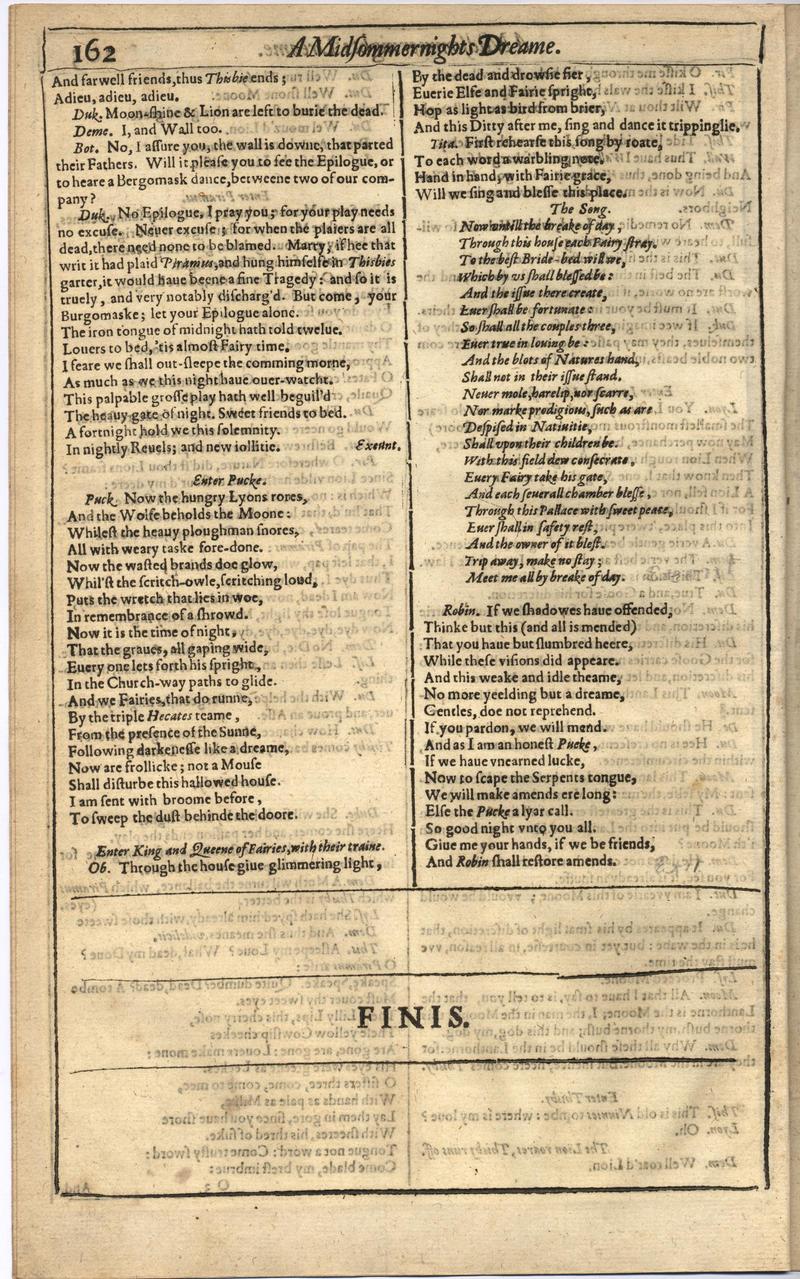 162
A Midsommernights Dreame.
And farwell friends, thus Thisbie ends;
Adieu, adieu, adieu.
Duk. Moon-shine & Lion are left to burie the dead.
Deme. I, and Wall too.
Bot. No, I assure you, the wall is downe, that parted
their Fathers. Will it please you to see the Epilogue, or
to heare a Bergomask dance, betweene two of our com-
pany?
Duk. No Epilogue, I pray you; for your play needs
no excuse. Neuer excuse; for when the plaiers are all
dead, there need none to be blamed. Marry, if hee that
writ it had plaid Piramus, and hung himselfe in Thisbies
garter, it would haue beene a fine Tragedy: and so it is
truely, and very notably discharg'd. But come, your
Burgomaske; let your Epilogue alone.
The iron tongue of midnight hath told twelue.
Louers to bed, 'tis almost Fairy time.
I feare we shall out-sleepe the comming morne,
As much as we this night haue ouer-watcht.
This palpable grosse play hath well beguil'd
The heauy gate of night. Sweet friends to bed.
A fortnight hold we this solemnity.
In nightly Reuels; and new iollitie. Exeunt.
Enter Pucke.
Puck. Now the hungry Lyons rores,
And the Wolfe beholds the Moone:
Whilest the heauy ploughman snores,
All with weary taske fore-done.
Now the wasted brands doe glow,
Whil'st the scritch-owle, scritching loud,
Puts the wretch that lies in woe,
In remembrance of a shrowd.
Now it is the time of night,
That the graues, all gaping wide,
Euery one lets forth his spright,
In the Church-way paths to glide.
And we Fairies, that do runne,
By the triple Hecates teame,
From the presence of the Sunne,
Following darkenesse like a dreame,
Now are frollicke; not a Mouse
Shall disturbe this hallowed house.
I am sent with broome before,
To sweep the dust behinde the doore.
Enter King and Queene of Fairies, with their traine.
Ob. Through the house giue glimmering light,
By the dead and drowsie fier,
Euerie Elfe and Fairie spright,
Hop as light as bird from brier,
And this Ditty after me, sing and dance it trippinglie.
Tita. First rehearse this song by roate,
To each word a warbling note.
Hand in hand, with Fairie grace,
Will we sing and blesse this place.
The Song.
Now untill the breake of day,
Through this house each Fairy stray.
To the best Bride-bed will we,
Which by vs shall blessed be:
And the issue there create,
Euer shall be fortunate:
So shall all the couples three,
Euer true in louing be:
And the blots of Natures hand,
Shall not in their issue stand.
Neuer mole, harelip, nor scarre,
Nor marke prodigious, such as are
Despised in Natiuitie,
Shall vpon their children be.
With this field dew consecrate,
Euery Fairy take his gate,
And each seuerall chamber blesse,
Through this Pallace with sweet peace,
Euer shall in safety rest,
And the owner of it blest.
Trip away, make no stay;
Meet me all by breake of day.
Robin. If we shadowes haue offended,
Thinke but this (and all is mended)
That you haue but slumbred heere,
While these visions did appeare.
And this weake and idle theame,
No more yeelding but a dreame,
Gentles, doe not reprehend.
If you pardon, we will mend.
And as I am an honest Pucke,
If we haue vnearned lucke,
Now to scape the Serpents tongue,
We will make amends ere long:
Else the Pucke a lyar call.
So good night vnto you all.
Giue me your hands, if we be friends,
And Robin shall restore amends.
FINIS.